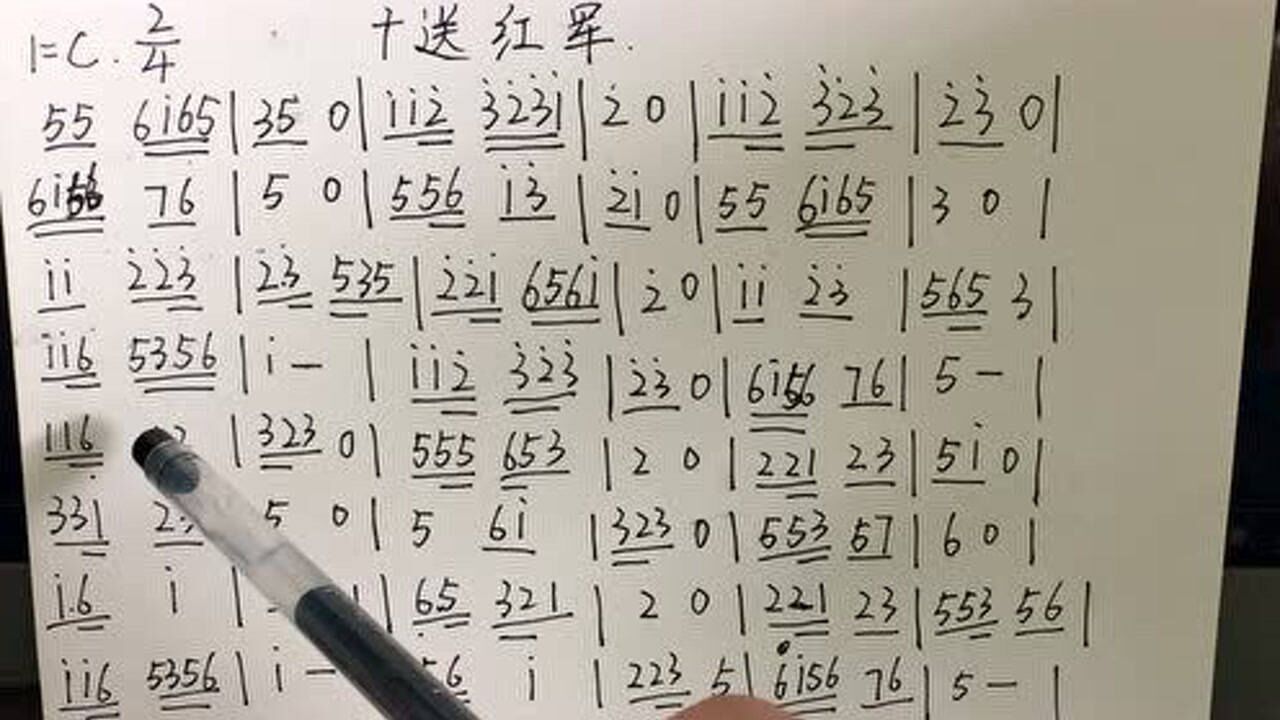 1=C. 2/4 十送红军.
55 6i65 | 35 0 | i i 2̇ 3̇2̇3̇i | 2̇ 0 | i i 2̇ 3̇2̇3̇ | 2̇3̇ 0 |
6i56 76 | 5 0 | 556 i3̇ | 2̇i 0 | 55 6i65 | 3 0 |
i i 2̇2̇3̇ | 2̇.3̇ 535 | 2̇2̇i 656i | 2̇ 0 | i i 2̇3̇ | 565 3 |
i i 6 5356 | i – | i i 2̇ 3̇2̇3̇ | 2̇3̇ 0 | 6i56 76 | 5 – |
116 | 323 0 | 555 653 | 2 0 | 221 23 | 5i 0 |
33i 2 5 0 | 5 6i | 323 0 | 553 57 | 6 0 |
i.6 i | | 65 321 | 2 0 | 221 23 | 553 56 |
i i 6 5356 | i – 6 i | 223 5 | 6i56 76 | 5 – |